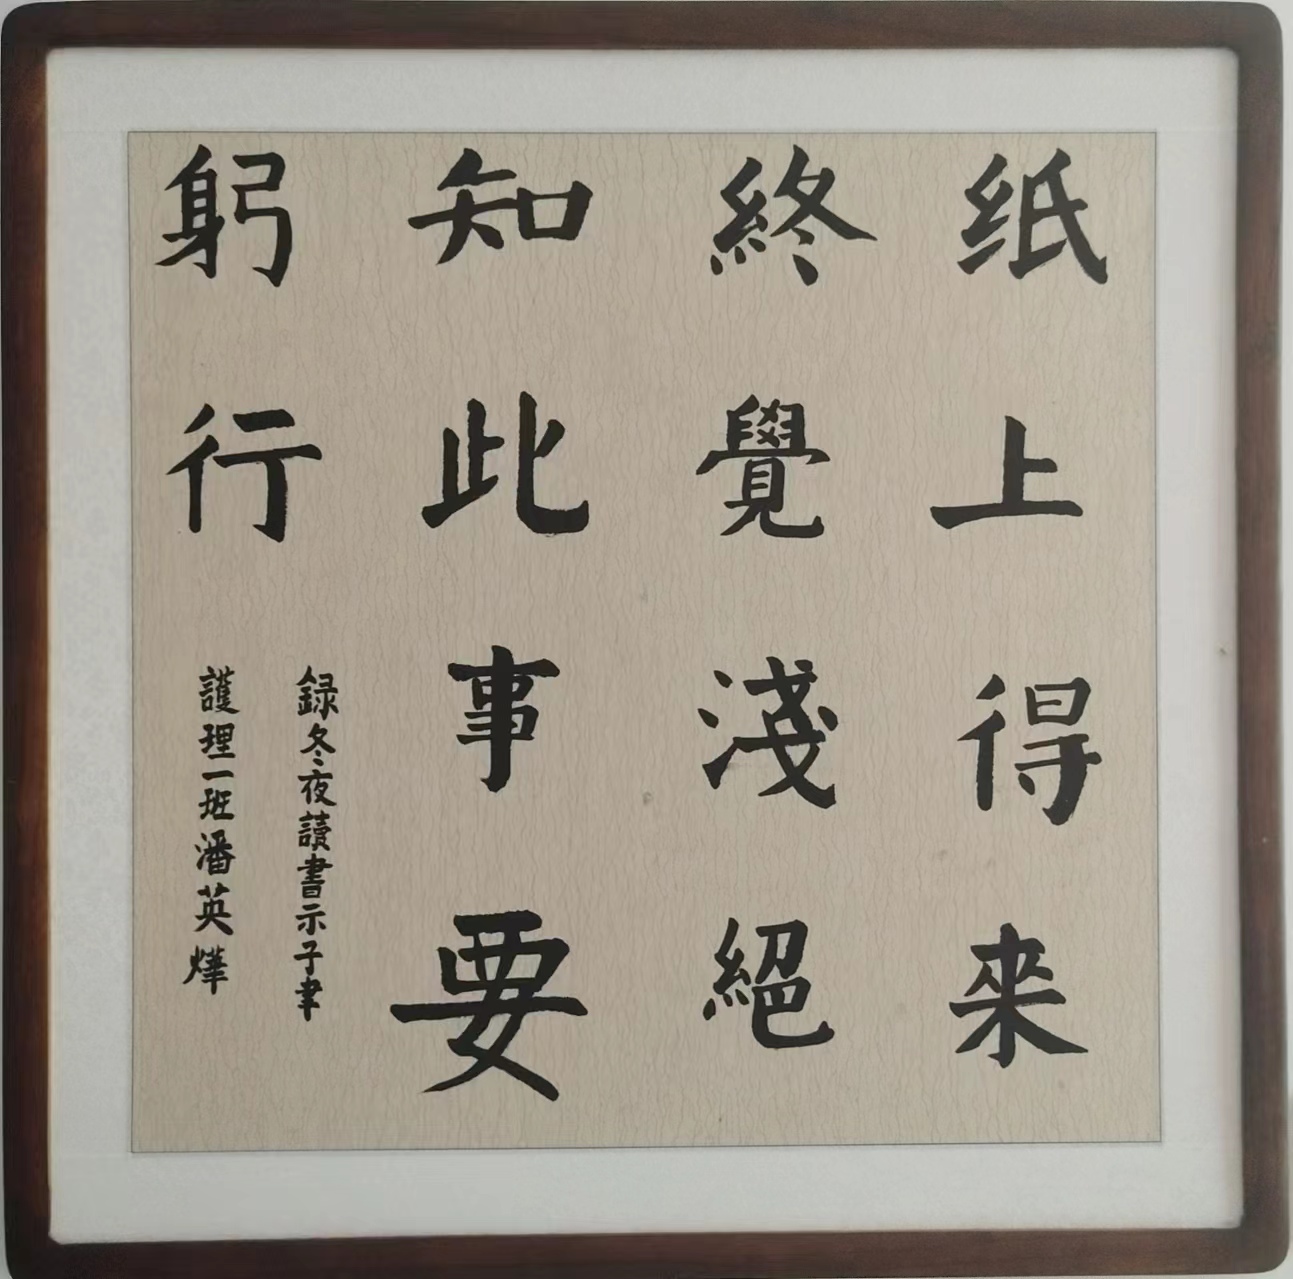 纸上得来
終覺淺絕
知此事要
躬行
録冬夜讀書示子聿
護理一班潘英燁